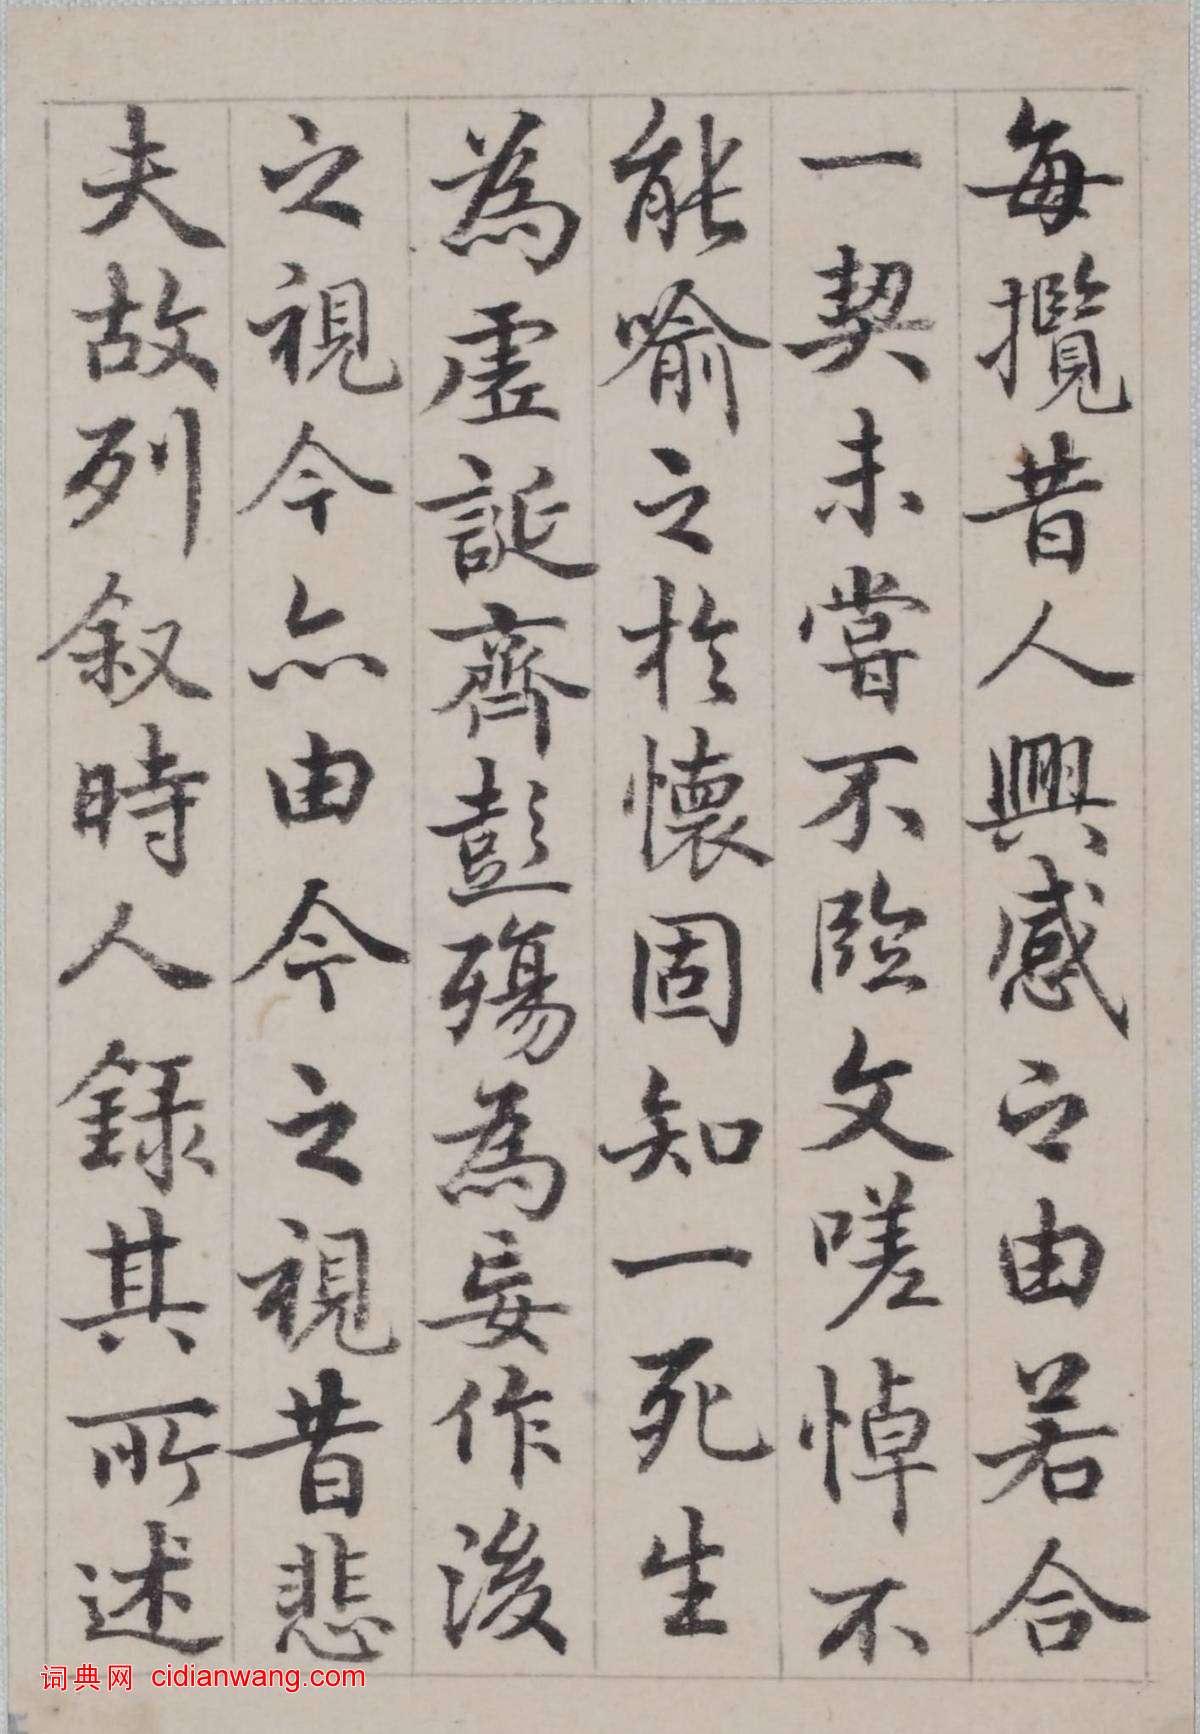 每攬昔人興感之由若合
一契未嘗不臨文嗟悼不
能喻之於懷固知一死生
為虛誕齊彭殤為妄作後
之視今亦由今之視昔悲
夫故列叙時人録其所述
词典网 cidianwang.com